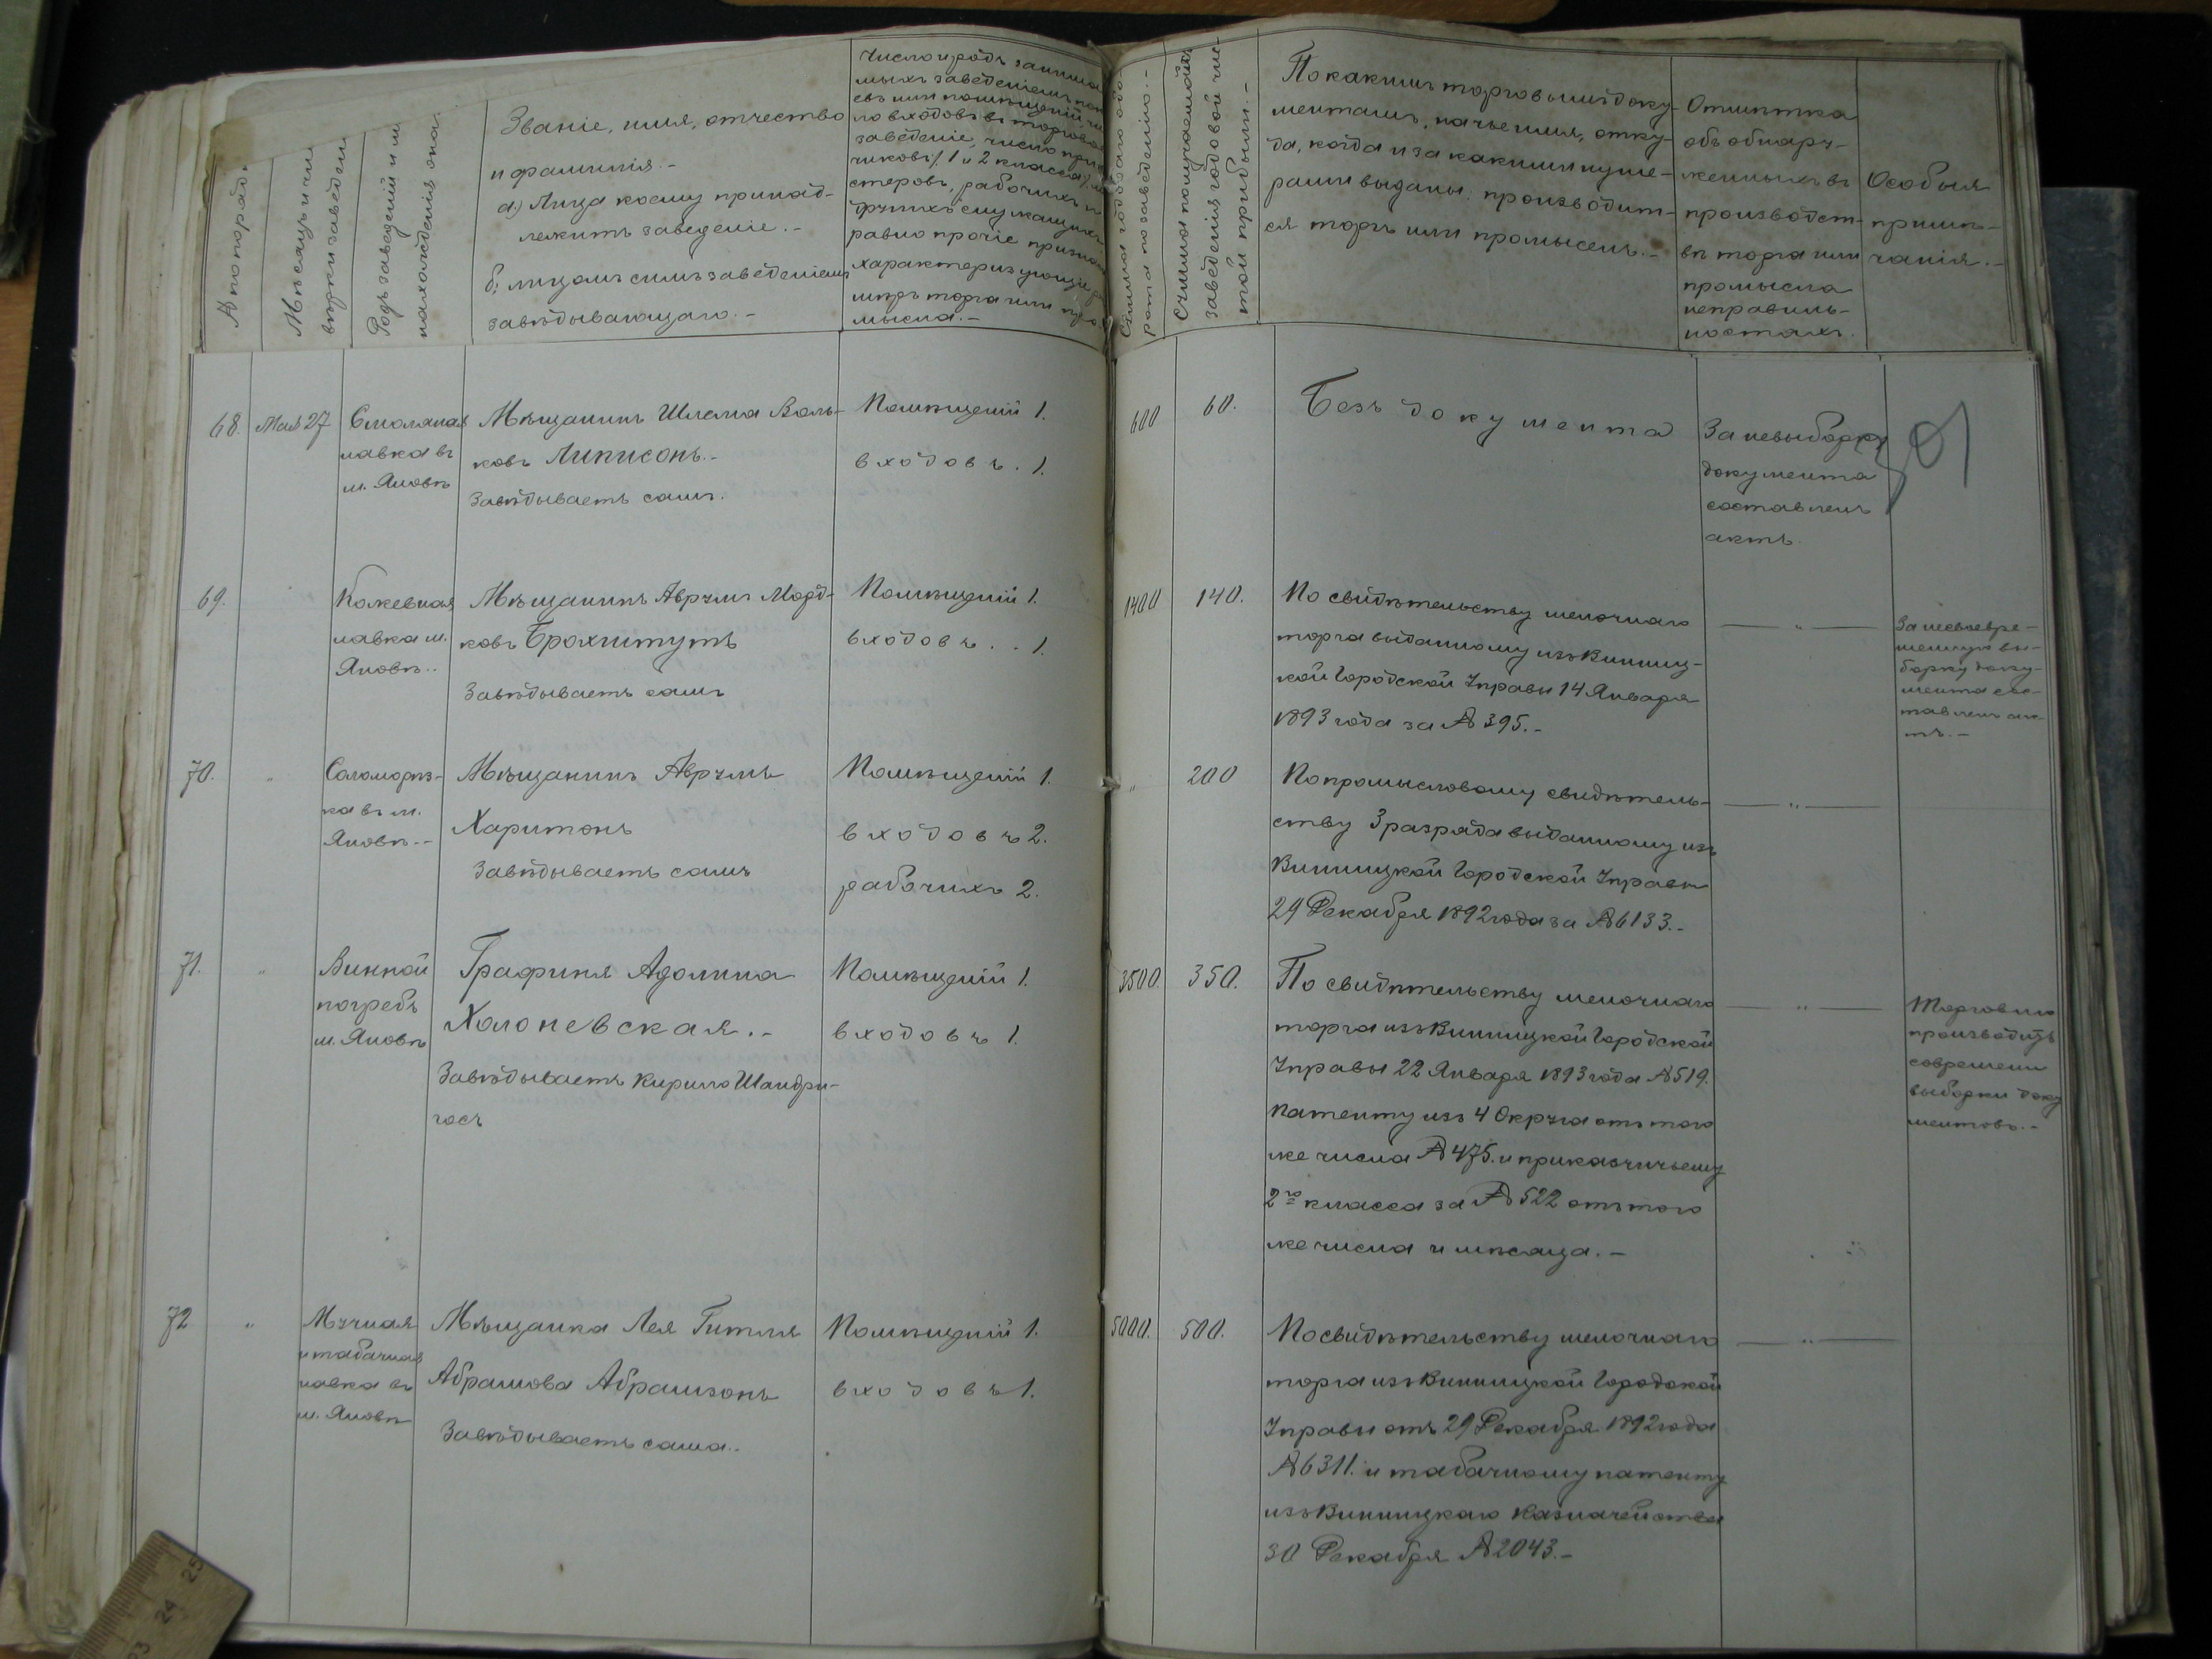 Званіе, имя, отчество
и фамилія.-
а) Лица коему принад-
лежитъ заведеніе.-
б) лицомъ симъ заведеніемъ
завѣдывающаго.-
Число и родъ
заведеніе, число
чиковъ 1 и 2 класса
стеровъ, рабочихъ и
равно прочіе
характеризующіе
мѣръ торга или про-
мысла.-
заведенія годовой чис
той прибыли.-
По какимъ торговымъ доку-
ментамъ, на чье имя, отку-
да, когда и за какими нуме-
рами выданы, производит-
ся торгъ или промыселъ.-
Отмѣтка
объ обнару-
женныхъ въ
производст-
вѣ торга или
промысла
неправиль-
ностяхъ.
Особыя
примѣ-
чанія.-
68.
Мая 27
Смоляная
лавка въ
м. Яновѣ
Мѣщанинъ Шлема Воль-
ковъ Липисонъ.-
Завѣдываетъ самъ.
Помѣщеній 1.
входовъ. 1.
600
60.
Безъ документа
За невыборку
документа
составленъ
актъ.
69.
Кожевная
лавка м.
Яновѣ..
Мѣщанинъ Аврумъ Морд-
ковъ Брохитутъ
Завѣдываетъ самъ
Помѣщеній 1.
входовъ. . 1.
1400
140.
По свидѣтельству мелочнаго
торга выданному изъ Винниц-
кой Городской Управы 14 Января
1893 года за № 395.-
— „ —
За несвоевре-
менную вы-
борку доку-
мента сос-
тавленъ ак-
тъ.-
70.
„
Саломорез-
ка въ м.
Яновѣ.-
Мѣщанинъ Аврумъ
Харитонъ
Завѣдываетъ самъ
Помѣщеній 1.
входовъ 2.
рабочихъ 2.
„
200
По промысловому свидѣтель-
ству 3 разряда выданному изъ
Винницкой Городской Управы
29 Декабря 1892 года за № 6133.-
— „ —
71.
„
Винной
погребъ
м. Яновѣ
Графиня Адолина
Холоневская.-
Завѣдываетъ Кирило Шандри-
госъ
Помѣщеній 1.
входовъ 1.
3500.
350.
По свидѣтельству мелочнаго
торга изъ Винницкой Городской
Управы 22 Января 1893 года № 519.
патенту изъ 4 Округа отъ того
же числа № 475. и приказчичьему
2го класса за № 522 отъ того
же числа и мѣсяца.-
— „ —
Торговлю
производитъ
современи
выборки доку
ментовъ.-
72
„
Мучная
и табачная
лавка въ
м. Яновѣ
Мѣщанка Лея Гитля
Абрамова Абрамзонъ
Завѣдываетъ сама..
Помѣщеній 1.
входовъ 1.
5000.
500.
По свидѣтельству мелочнаго
торга изъ Винницкой Городской
Управы отъ 29 Декабря 1892 года
№ 6311. и табачному патенту
изъ Винницкаго Казначейства
30 Декабря № 2043.-
— „ —